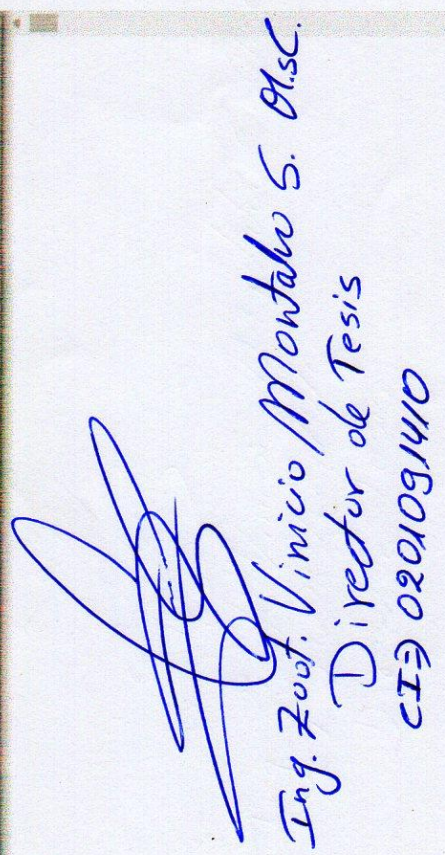 Ing. Zoot. Vinicio Montalvo S. M.sC.
Director de Tesis
CI=) 0201091410